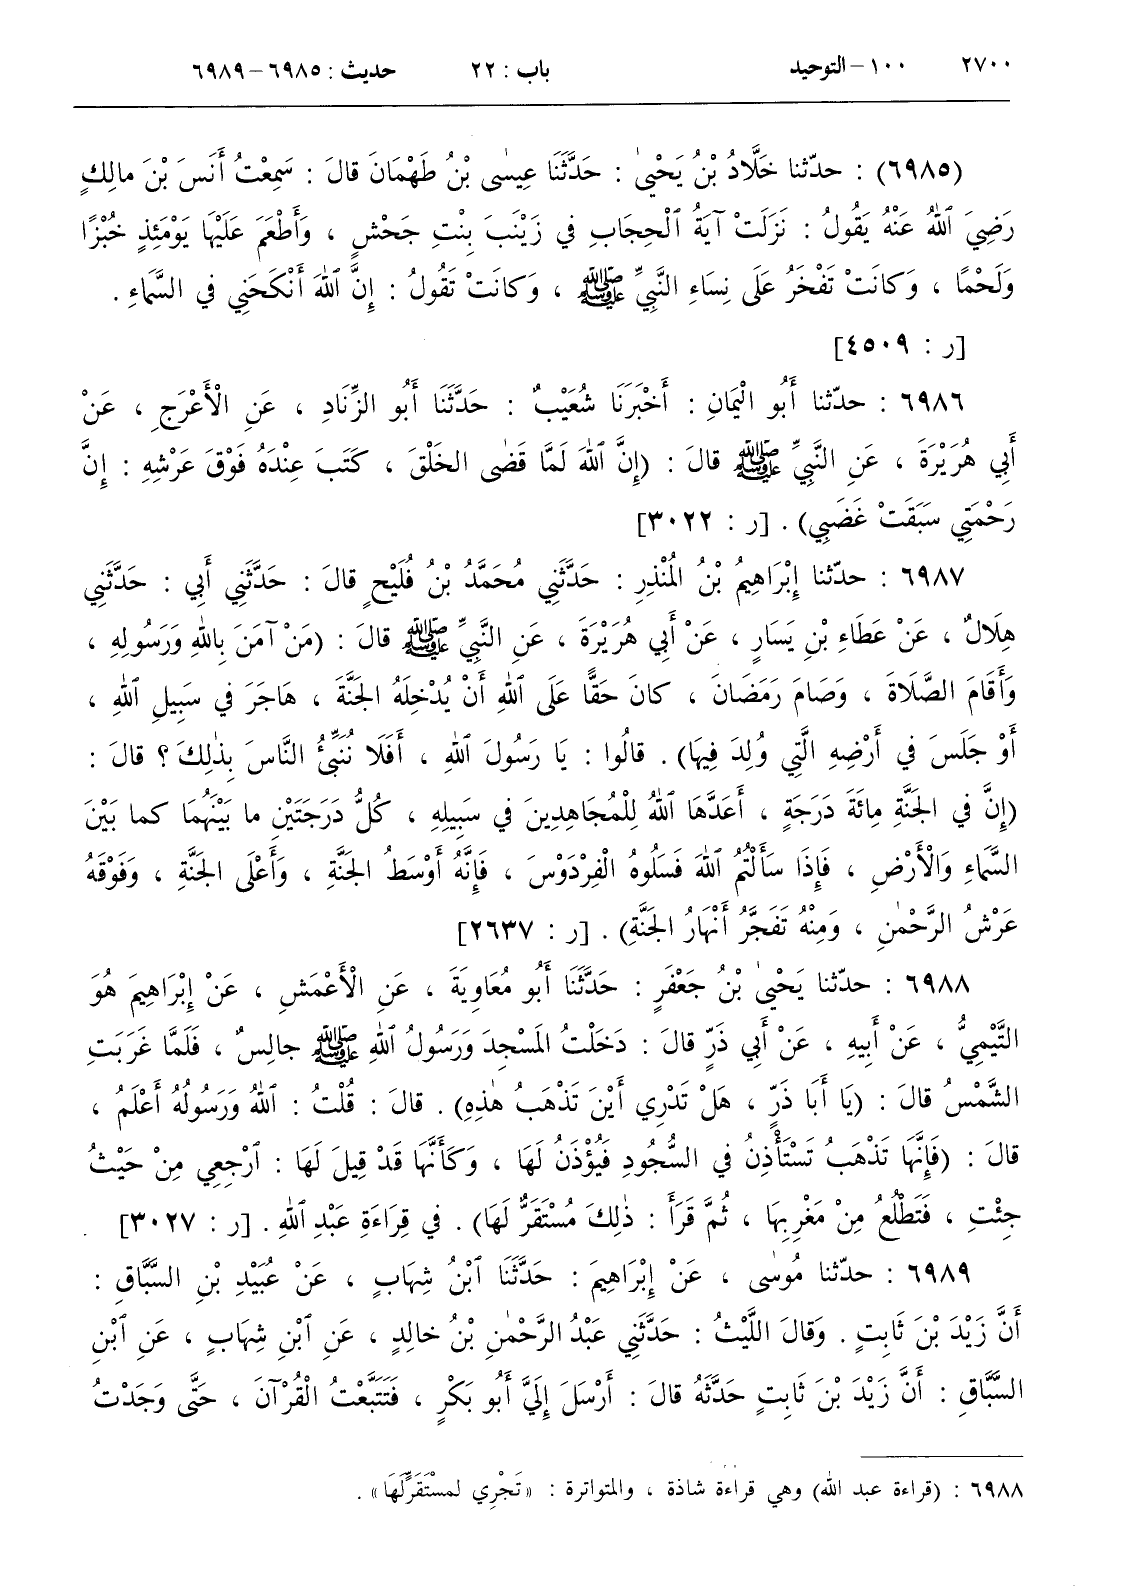 ٢٧٠٠ ١٠٠ – التوحيد باب : ٢٢ حديث : ٦٩٨٥ – ٦٩٨٩
(٦٩٨٥) : حدّثنا خَلَّادُ بْنُ يَحْيىٰ : حَدَّثَنَا عِيسٰى بْنُ طَهْمَانَ قالَ : سَمِعْتُ أَنَسَ بْنَ مالِكٍ
رَضِيَ ٱللهُ عَنْهُ يَقُولُ : نَزَلَتْ آيَةُ ٱلْحِجَابِ في زَيْنَبَ بِنْتِ جَحْشٍ ، وَأَطْعَمَ عَلَيْهَا يَوْمَئِذٍ خُبْزًا
وَلَحْمًا ، وَكانَتْ تَفْخَرُ عَلَى نِسَاءِ النَّبِيِّ ﷺ ، وَكانَتْ تَقُولُ : إِنَّ ٱللهَ أَنْكَحَنِي في السَّمَاءِ .
[ر : ٤٥٠٩]
٦٩٨٦ : حدّثنا أَبُو الْيَمَانِ : أَخْبَرَنَا شُعَيْبٌ : حَدَّثَنَا أَبُو الزِّنَادِ ، عَنِ الْأَعْرَجِ ، عَنْ
أَبِي هُرَيْرَةَ ، عَنِ النَّبِيِّ ﷺ قالَ : (إِنَّ ٱللهَ لَمَّا قَضٰى الخَلْقَ ، كَتَبَ عِنْدَهُ فَوْقَ عَرْشِهِ : إِنَّ
رَحْمَتِي سَبَقَتْ غَضَبِي) . [ر : ٣٠٢٢]
٦٩٨٧ : حدّثنا إِبْرَاهِيمُ بْنُ المُنْذِرِ : حَدَّثَنِي مُحَمَّدُ بْنُ فُلَيْحٍ قالَ : حَدَّثَنِي أَبِي : حَدَّثَنِي
هِلَالٌ ، عَنْ عَطَاءِ بْنِ يَسَارٍ ، عَنْ أَبِي هُرَيْرَةَ ، عَنِ النَّبِيِّ ﷺ قالَ : (مَنْ آمَنَ بِٱللهِ وَرَسُولِهِ ،
وَأَقَامَ الصَّلَاةَ ، وَصَامَ رَمَضَانَ ، كانَ حَقًّا عَلَى ٱللهِ أَنْ يُدْخِلَهُ الجَنَّةَ ، هَاجَرَ في سَبِيلِ ٱللهِ ،
أَوْ جَلَسَ في أَرْضِهِ الَّتِي وُلِدَ فِيهَا) . قالُوا : يَا رَسُولَ ٱللهِ ، أَفَلَا نُنَبِّئُ النَّاسَ بِذٰلِكَ ؟ قالَ :
(إِنَّ في الجَنَّةِ مِائَةَ دَرَجَةٍ ، أَعَدَّهَا ٱللهُ لِلْمُجَاهِدِينَ في سَبِيلِهِ ، كُلُّ دَرَجَتَيْنِ ما بَيْنَهُمَا كما بَيْنَ
السَّمَاءِ وَالْأَرْضِ ، فَإِذَا سَأَلْتُمُ ٱللهَ فَسَلُوهُ الْفِرْدَوْسَ ، فَإِنَّهُ أَوْسَطُ الجَنَّةِ ، وَأَعْلَى الجَنَّةِ ، وَفَوْقَهُ
عَرْشُ الرَّحْمٰنِ ، وَمِنْهُ تَفَجَّرُ أَنْهَارُ الجَنَّةِ) . [ر : ٢٦٣٧]
٦٩٨٨ : حدّثنا يَحْيىٰ بْنُ جَعْفَرٍ : حَدَّثَنَا أَبُو مُعَاوِيَةَ ، عَنِ الْأَعْمَشِ ، عَنْ إِبْرَاهِيمَ هُوَ
التَّيْمِيُّ ، عَنْ أَبِيهِ ، عَنْ أَبِي ذَرٍّ قالَ : دَخَلْتُ المَسْجِدَ وَرَسُولُ ٱللهِ ﷺ جالِسٌ ، فَلَمَّا غَرَبَتِ
الشَّمْسُ قالَ : (يَا أَبَا ذَرٍّ ، هَلْ تَدْرِي أَيْنَ تَذْهَبُ هٰذِهِ) . قالَ : قُلْتُ : ٱللهُ وَرَسُولُهُ أَعْلَمُ ،
قالَ : (فَإِنَّهَا تَذْهَبُ تَسْتَأْذِنُ في السُّجُودِ فَيُؤْذَنُ لَهَا ، وَكَأَنَّهَا قَدْ قِيلَ لَهَا : ٱرْجِعِي مِنْ حَيْثُ
جِئْتِ ، فَتَطْلُعُ مِنْ مَغْرِبِهَا ، ثُمَّ قَرَأَ : ذٰلِكَ مُسْتَقَرٌّ لَهَا) . في قِرَاءَةِ عَبْدِ ٱللهِ . [ر : ٣٠٢٧]
٦٩٨٩ : حدّثنا مُوسٰى ، عَنْ إِبْرَاهِيمَ : حَدَّثَنَا ٱبْنُ شِهَابٍ ، عَنْ عُبَيْدِ بْنِ السَّبَّاقِ :
أَنَّ زَيْدَ بْنَ ثَابِتٍ . وَقالَ اللَّيْثُ : حَدَّثَنِي عَبْدُ الرَّحْمٰنِ بْنُ خالِدٍ ، عَنِ ٱبْنِ شِهَابٍ ، عَنِ ٱبْنِ
السَّبَّاقِ : أَنَّ زَيْدَ بْنَ ثَابِتٍ حَدَّثَهُ قالَ : أَرْسَلَ إِلَيَّ أَبُو بَكْرٍ ، فَتَتَبَّعْتُ الْقُرْآنَ ، حَتَّى وَجَدْتُ
٦٩٨٨ : (قراءة عبد الله) وهي قراءة شاذة ، والمتواترة : «تَجْرِي لمستَقَرٍّ لَهَا» .